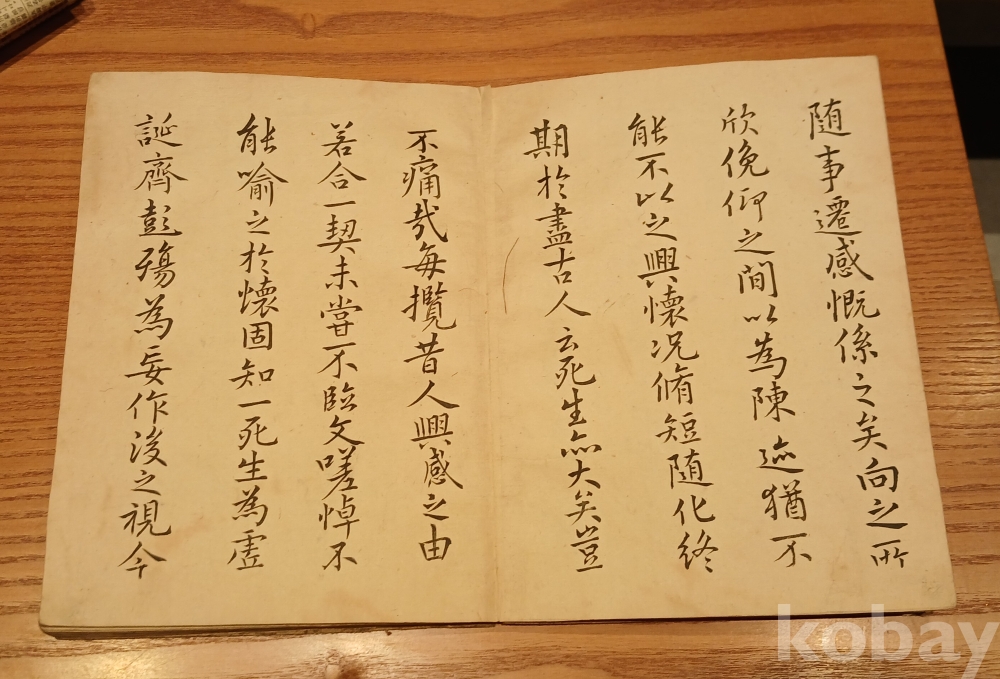 随事遷感慨係之矣向之所
欣俛仰之間以為陳迹猶不
能不以之興懷况脩短随化終
期於盡古人云死生亦大矣豈
不痛哉每攬昔人興感之由
若合一契未甞不臨文嗟悼不
能喻之於懷固知一死生為虛
誕齊彭殤為妄作後之視今
kobay